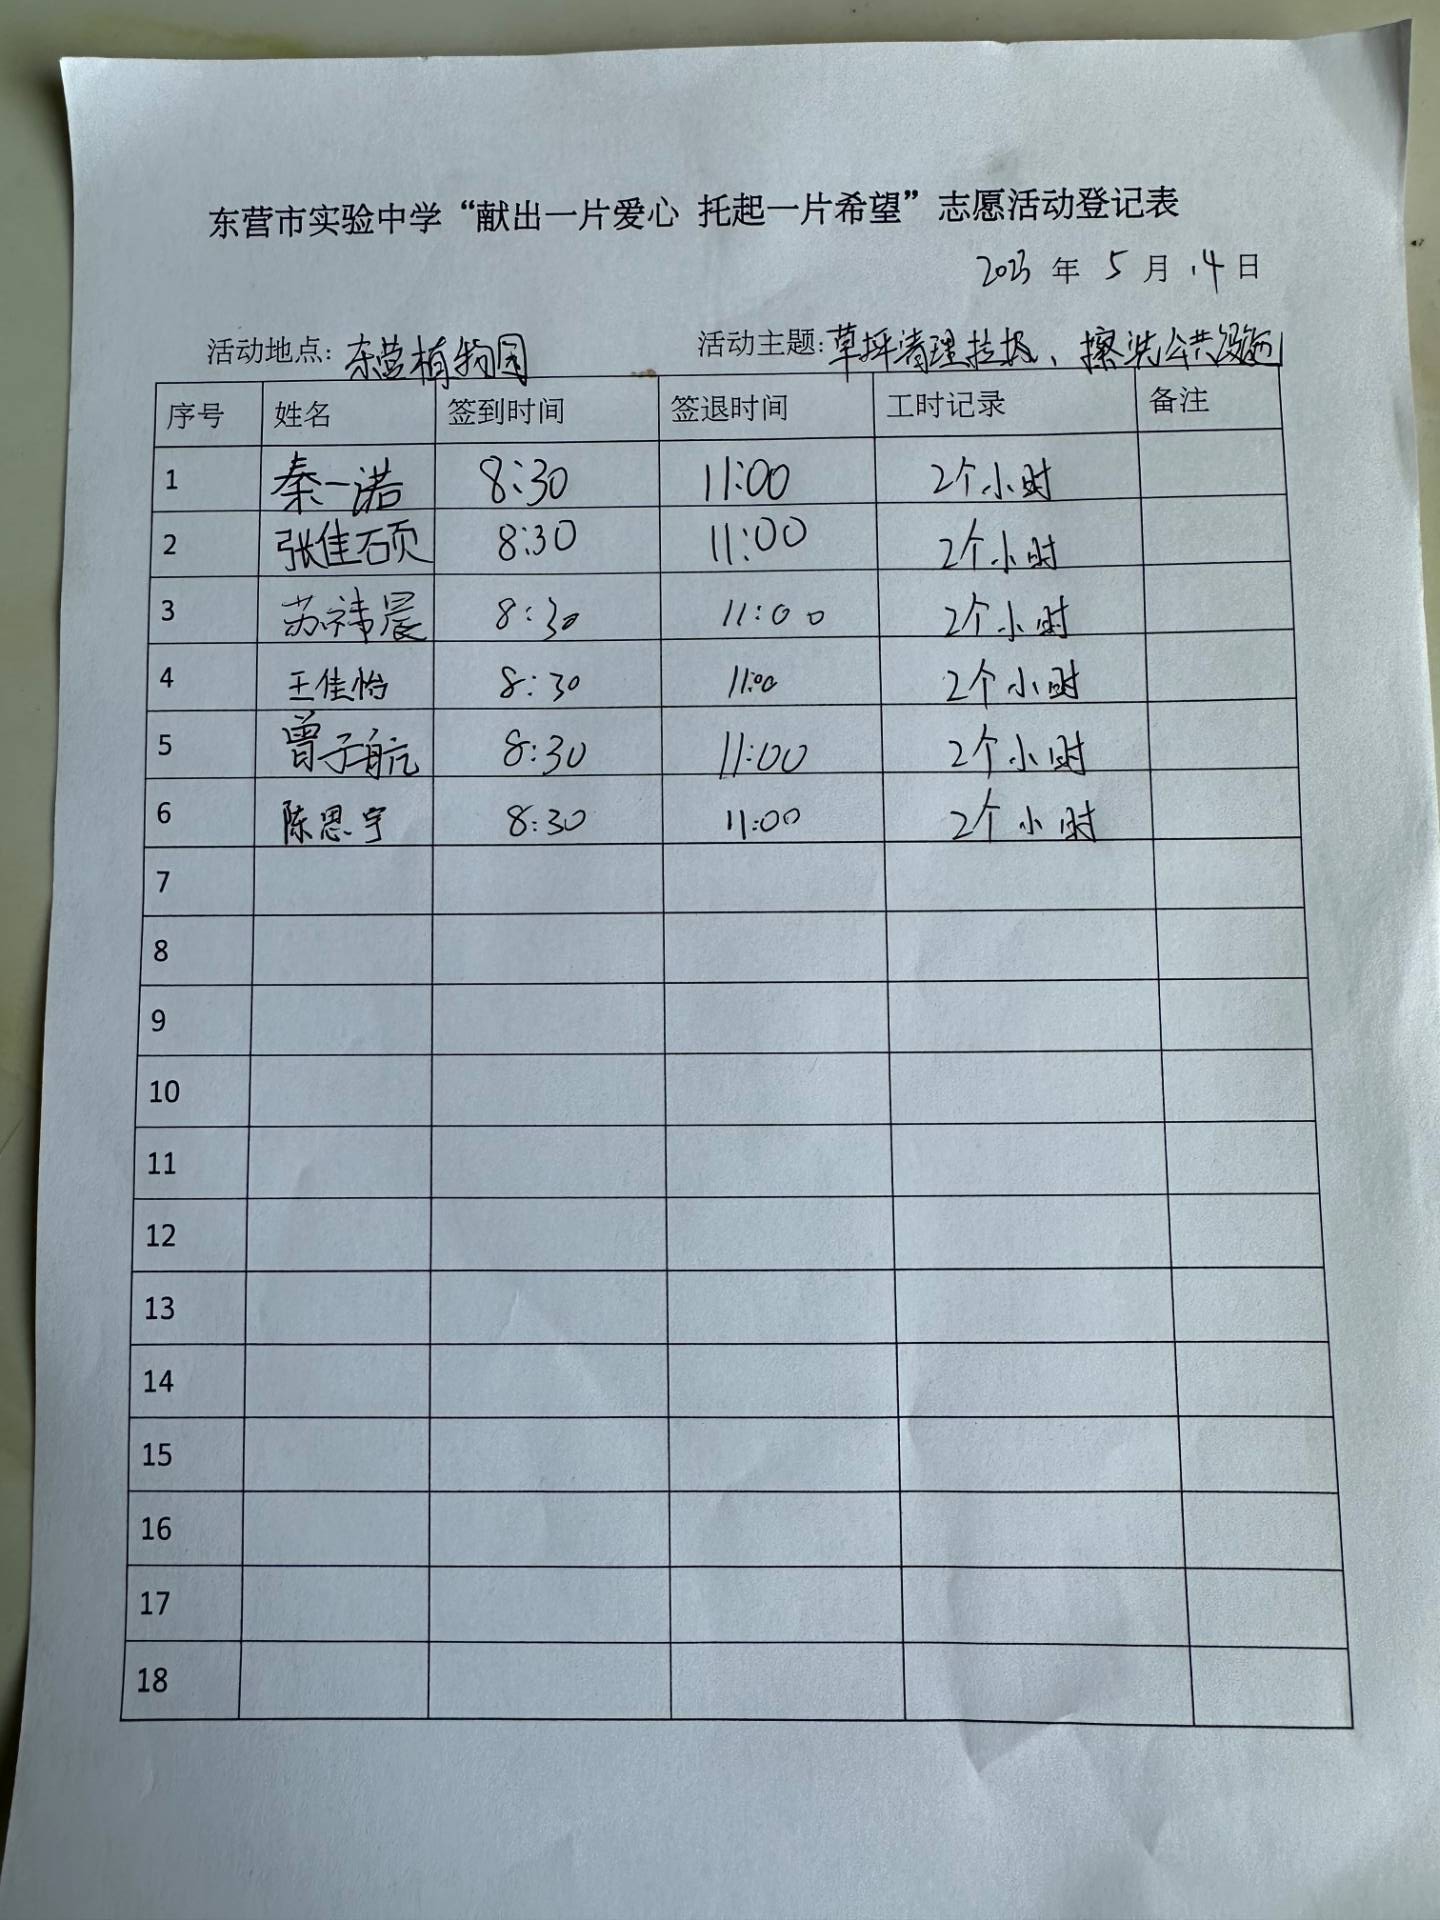 东营市实验中学“献出一片爱心 托起一片希望”志愿活动登记表
2023 年 5 月 14 日
活动地点: 东营植物园 活动主题: 草坪清理垃圾、擦洗公共设施
序号 姓名 签到时间 签退时间 工时记录 备注
1 秦一诺 8:30 11:00 2个小时
2 张佳硕 8:30 11:00 2个小时
3 苏祎晨 8:30 11:00 2个小时
4 王佳怡 8:30 11:00 2个小时
5 曾子航 8:30 11:00 2个小时
6 陈思宇 8:30 11:00 2个小时
7
8
9
10
11
12
13
14
15
16
17
18